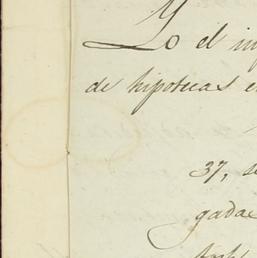 Yo el in
de hipotecas e
37, s
gada